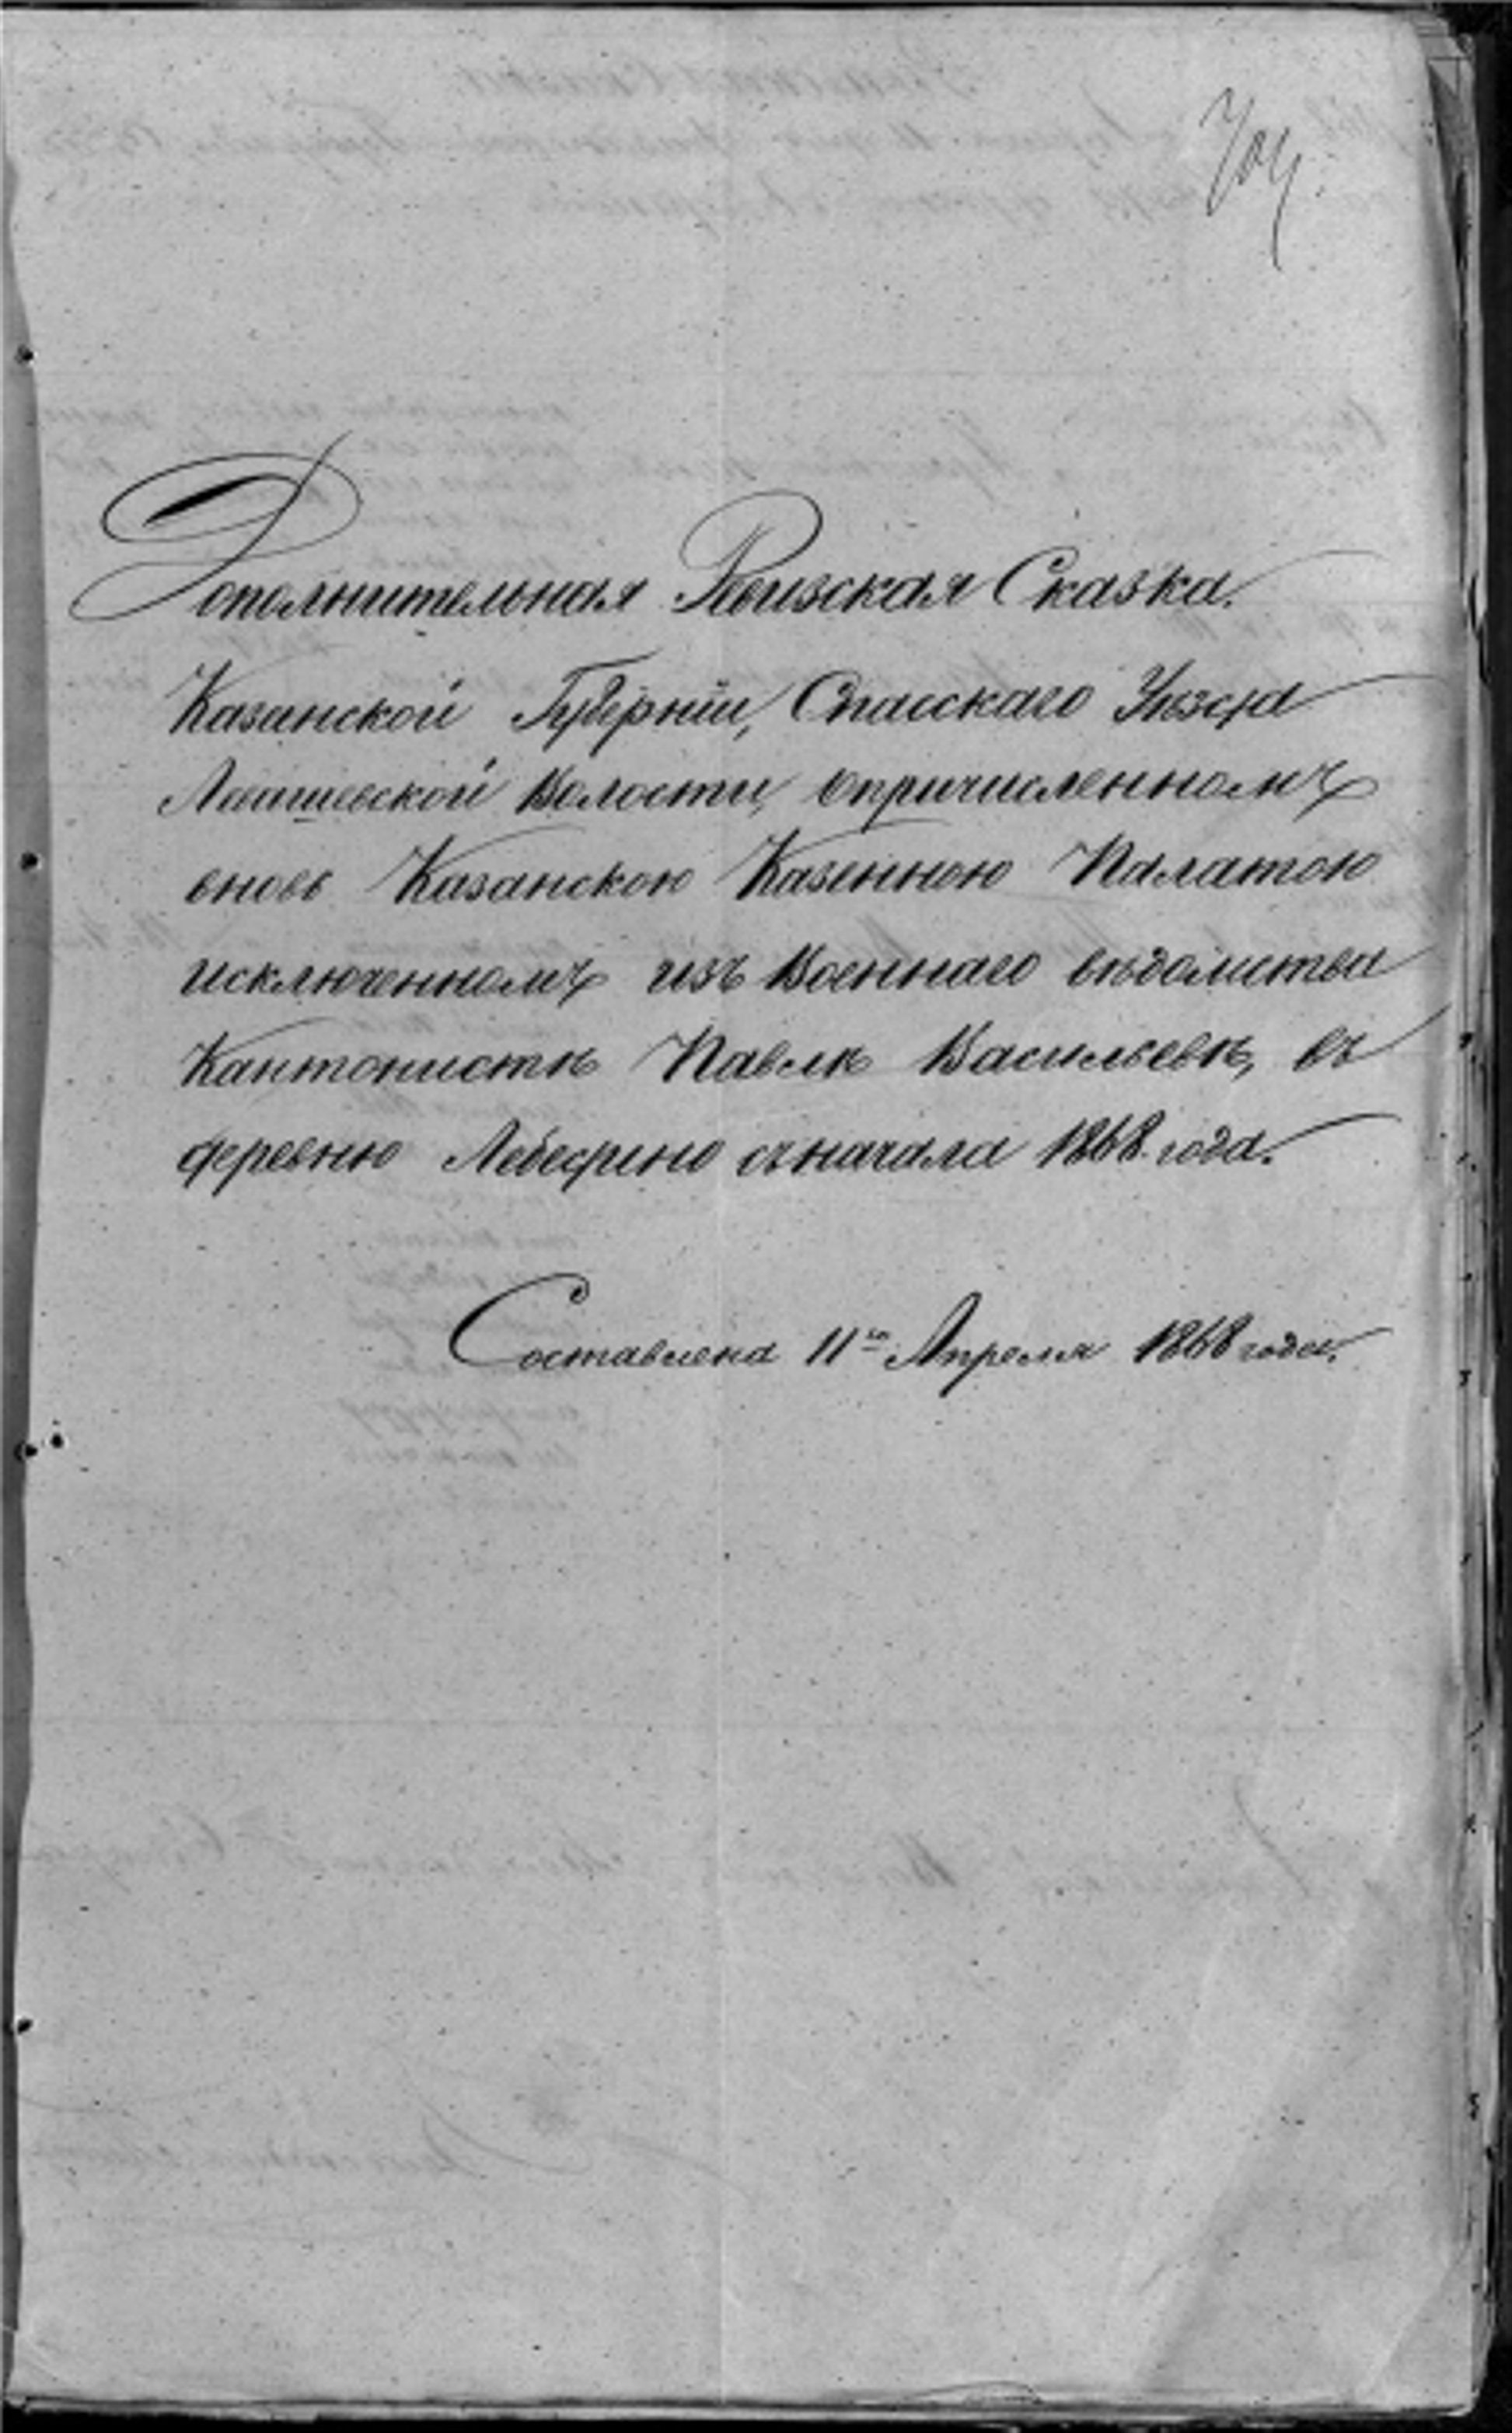 Дополнительная Ревизская Сказка.
Казанской Губерніи, Спасскаго Уѣзда
Левашевской Волости, опричисленномъ
вновь Казанскою Казенною Палатою
исключенномъ изъ Военнаго вѣдомства
Кантонистѣ Павлѣ Васильевѣ, въ
деревню Лебедино съ начала 1868 года.
Составлена 11го Апреля 1868 года.